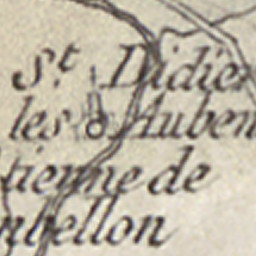 St. Didier
les Auben
tienne de
nbellon